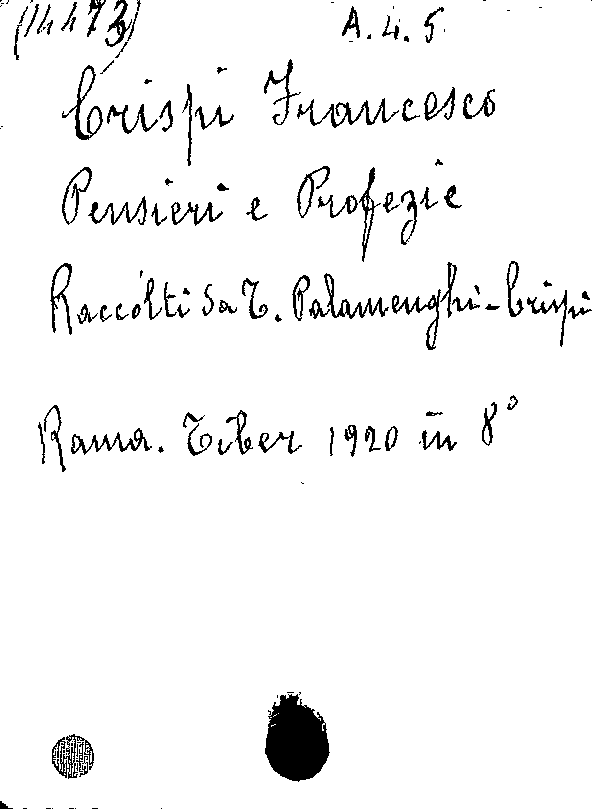 (14473) A.4.5
Crispi Francesco
Pensieri e Profezie
Raccolti da T. Palamenghi-Crispi
Roma. Tiber 1920 in 8°